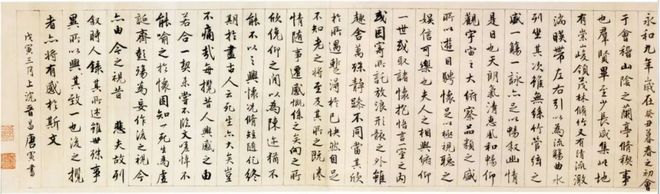 永和九年歲在癸丑暮春之初會
于會稽山陰之蘭亭脩稧事
也羣賢畢至少長咸集此地
有崇山峻領茂林脩竹又有清流激
湍暎帶左右引以為流觴曲水
列坐其次雖無絲竹管弦之
盛一觴一詠亦足以暢敘幽情
是日也天朗氣清惠風和暢仰
觀宇宙之大俯察品類之盛
所以遊目騁懷足以極視聽之
娛信可樂也夫人之相與俯仰
一世或取諸懷抱悟言一室之內
或因寄所託放浪形骸之外雖
趣舍萬殊靜躁不同當其欣
於所遇蹔得於己快然自足
不知老之將至及其所之既惓
情隨事遷感慨係之矣向之所
欣俛仰之間以為陳迹猶不
能不以之興懷況脩短隨化終
期於盡古人云死生亦大矣豈
不痛哉每攬昔人興感之由
若合一契未嘗不臨文嗟悼不
能喻之於懷固知一死生為虛
誕齊彭殤為妄作後之視今
亦由今之視昔 悲夫故列
敘時人錄其所述雖世殊事
異所以興其致一也後之攬
者亦將有感於斯文
戊寅三月上浣晉昌唐寅書